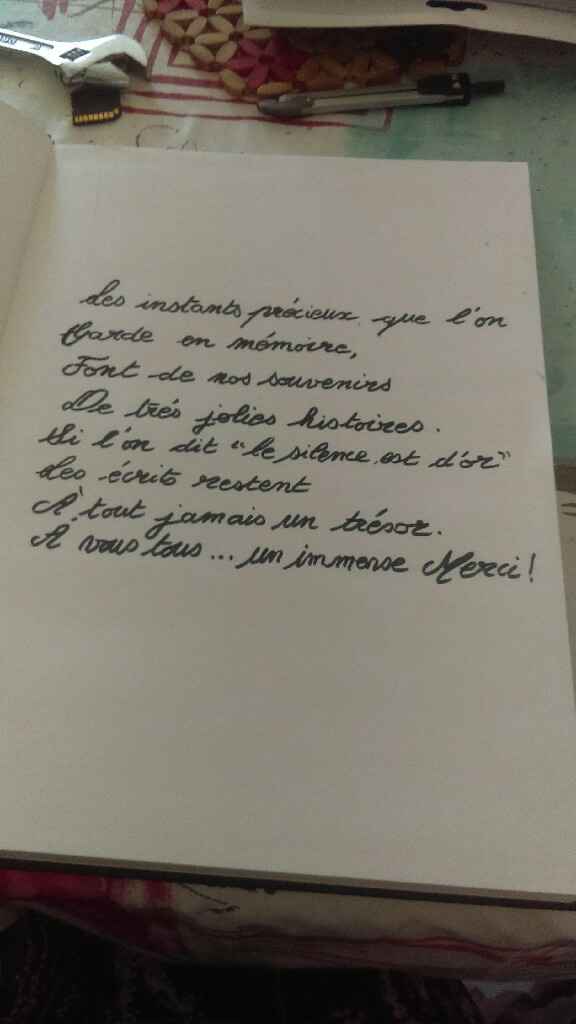 Les instants précieux que l'on
Garde en mémoire,
Font de nos souvenirs
De trés jolies histoires.
Si l'on dit "le silence est d'or"
des écrits restent
À tout jamais un trésor.
A vous tous... un immense Merci!